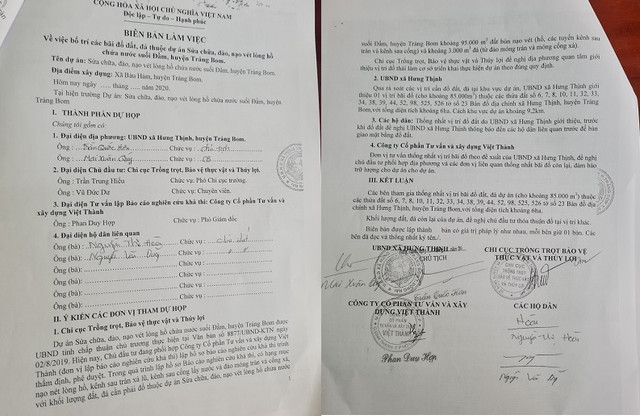 CỘNG HÒA XÃ HỘI CHỦ NGHĨA VIỆT NAM
Độc lập - Tự do - Hạnh phúc
BIÊN BẢN LÀM VIỆC
Về việc bố trí các bãi đổ đất, đá thuộc dự án Sửa chữa, đào, nạo vét lòng hồ
chứa nước suối Đầm, huyện Trảng Bom.
Tên dự án: Sửa chữa, đào, nạo vét lòng hồ chứa nước suối Đầm, huyện Trảng Bom.
Địa điểm xây dựng: Xã Bàu Hàm, huyện Trảng Bom.
Hôm nay ngày ..... tháng ..... năm 2020.
Tại hiện trường Dự án: Sửa chữa, đào, nạo vét lòng hồ chứa nước suối Đầm, huyện
Trảng Bom
I. THÀNH PHẦN DỰ HỌP
Chúng tôi gồm có:
1. Đại diện địa phương: UBND xã Hưng Thịnh, huyện Trảng Bom.
Ông : Trần Quốc Hiếu Chức vụ :
Ông : Mai Xuân Quy Chức vụ :
2. Đại diện Chủ đầu tư: Chi cục Trồng trọt, Bảo vệ thực vật và Thủy lợi.
Ông : Trần Trung Hiếu Chức vụ: Phó Chi cục trưởng.
Ông : Vũ Đức Dư Chức vụ: Chuyên viên.
3. Đại diện Tư vấn lập Báo cáo nghiên cứu khả thi: Công ty Cổ phần Tư vấn và
xây dựng Việt Thành
Ông : Phan Duy Hợp Chức vụ: Phó Giám đốc
4. Đại diện hộ dân liên quan
Ông (bà) : Nguyễn Thị Hoài Chức vụ: chủ đất
Ông (bà) : Nguyễn Văn Duy Chức vụ :
Ông (bà): Chức vụ :
Ông (bà): Chức vụ :
Ông (bà): Chức vụ :
Ông (bà): Chức vụ :
II. Ý KIẾN CÁC ĐƠN VỊ THAM DỰ HỌP
1. Chi cục Trồng trọt, Bảo vệ thực vật và Thủy lợi
Dự án Sửa chữa, đào, nạo vét lòng hồ chứa nước suối Đầm, huyện Trảng Bom được
UBND tỉnh chấp thuận chủ trương thực hiện tại Văn bản số 8877/UBND-KTN ngày
02/8/2019. Hiện nay, Chủ đầu tư đang phối hợp Công ty Cổ phần Tư vấn và xây dựng Việt
Thành (đơn vị lập báo cáo nghiên cứu khả thi) lập hồ sơ báo cáo nghiên cứu khả thi trình
thẩm định, phê duyệt. Trong quá trình lập hồ sơ Báo cáo nghiên cứu khả thi, có hạng mục
nạo vét lòng hồ, kênh sau tràn xả lũ, kênh sau cống lấy nước và đào móng tràn và cống xả,
với khối lượng đất, đá cần phải đổ thuộc dự án Sửa chữa, đào, nạo vét lòng hồ chứa nước
1
suối Đầm, huyện Trảng Bom khoảng 95.000 m³ đất bùn nạo vét (hồ, các tuyến kênh sau
tràn và kênh sau cống) và khoảng 3.000 m³ đá (từ đào móng tràn và móng cống xả).
Chi cục Trồng trọt, Bảo vệ thực vật và Thủy lợi đề nghị địa phương quan tâm giới
thiệu vị trí đổ thải làm cơ sở triển khai thực hiện dự án theo đúng quy định.
2. UBND xã Hưng Thịnh
Qua rà soát các vị trí cần đổ đất, đá tại khu vực dự án, UBND xã Hưng Thịnh giới
thiệu 01 vị trí bãi đổ (cho khoảng 85.000m³) thuộc các thửa đất số 6, 7, 8, 10, 11, 32, 33,
34, 38, 39, 44, 52, 98, 525, 526 tờ số 23 Bản đồ địa chính xã Hưng Thịnh, huyện Trảng
Bom,với tổng diện tích khoảng 6ha. Cách khu vực dự án khoảng 9,2km.
3. Các hộ dân: Thống nhất vị trí đổ đất do UBND xã Hưng Thịnh giới thiệu, trước
khi đổ đất đề nghị UBND xã Hưng Thịnh thông báo đến các hộ dân liên quan trước để bàn
giao mặt bằng đổ đất.
4. Công ty Cổ phần Tư vấn và xây dựng Việt Thành
Đơn vị tư vấn thống nhất vị trí bãi đổ theo đề xuất của UBND xã Hưng Thịnh, đề nghị
chủ đầu tư phối hợp địa phương và các đơn vị liên quan thống nhất bãi đổ còn lại, đảm bảo
trữ lượng cho dự án cho dự án.
III. KẾT LUẬN
Các bên tham gia thống nhất vị trí bãi đổ đất, đá dự án (cho khoảng 85.000 m³) thuộc
các thửa đất số 6, 7, 8, 10, 11, 32, 33, 34, 38, 39, 44, 52, 98, 525, 526 tờ 23 Bản đồ địa
chính xã Hưng Thịnh, huyện Trảng Bom,với tổng diện tích khoảng 6ha.
Khối lượng đất, đá còn lại của dự án, đề nghị chủ đầu tư thỏa thuận đổ tại vị trí khác.
Biên bản được lập thành bản có giá trị pháp lý như nhau, mỗi bên giữ 01 bản. Các
bên đã đọc và thống nhất ký tên./.
UBND XÃ HƯNG THỊNH
CHỦ TỊCH
Mai Xuân Quy
Trần Quốc Hiếu
CHI CỤC TRỒNG TRỌT BẢO VỆ
THỰC VẬT VÀ THỦY LỢI
CHI CỤC
TRỒNG TRỌT
BẢO VỆ THỰC VẬT
VÀ THỦY LỢI
CÔNG TY CỔ PHẦN TƯ VẤN VÀ XÂY
DỰNG VIỆT THÀNH
CỔ PHẦN
TƯ VẤN VÀ XÂY DỰNG
VIỆT THÀNH
Phan Duy Hợp
CÁC HỘ DÂN
Hoài
Nguyễn Thị Hoài
Duy
Nguyễn Văn Duy